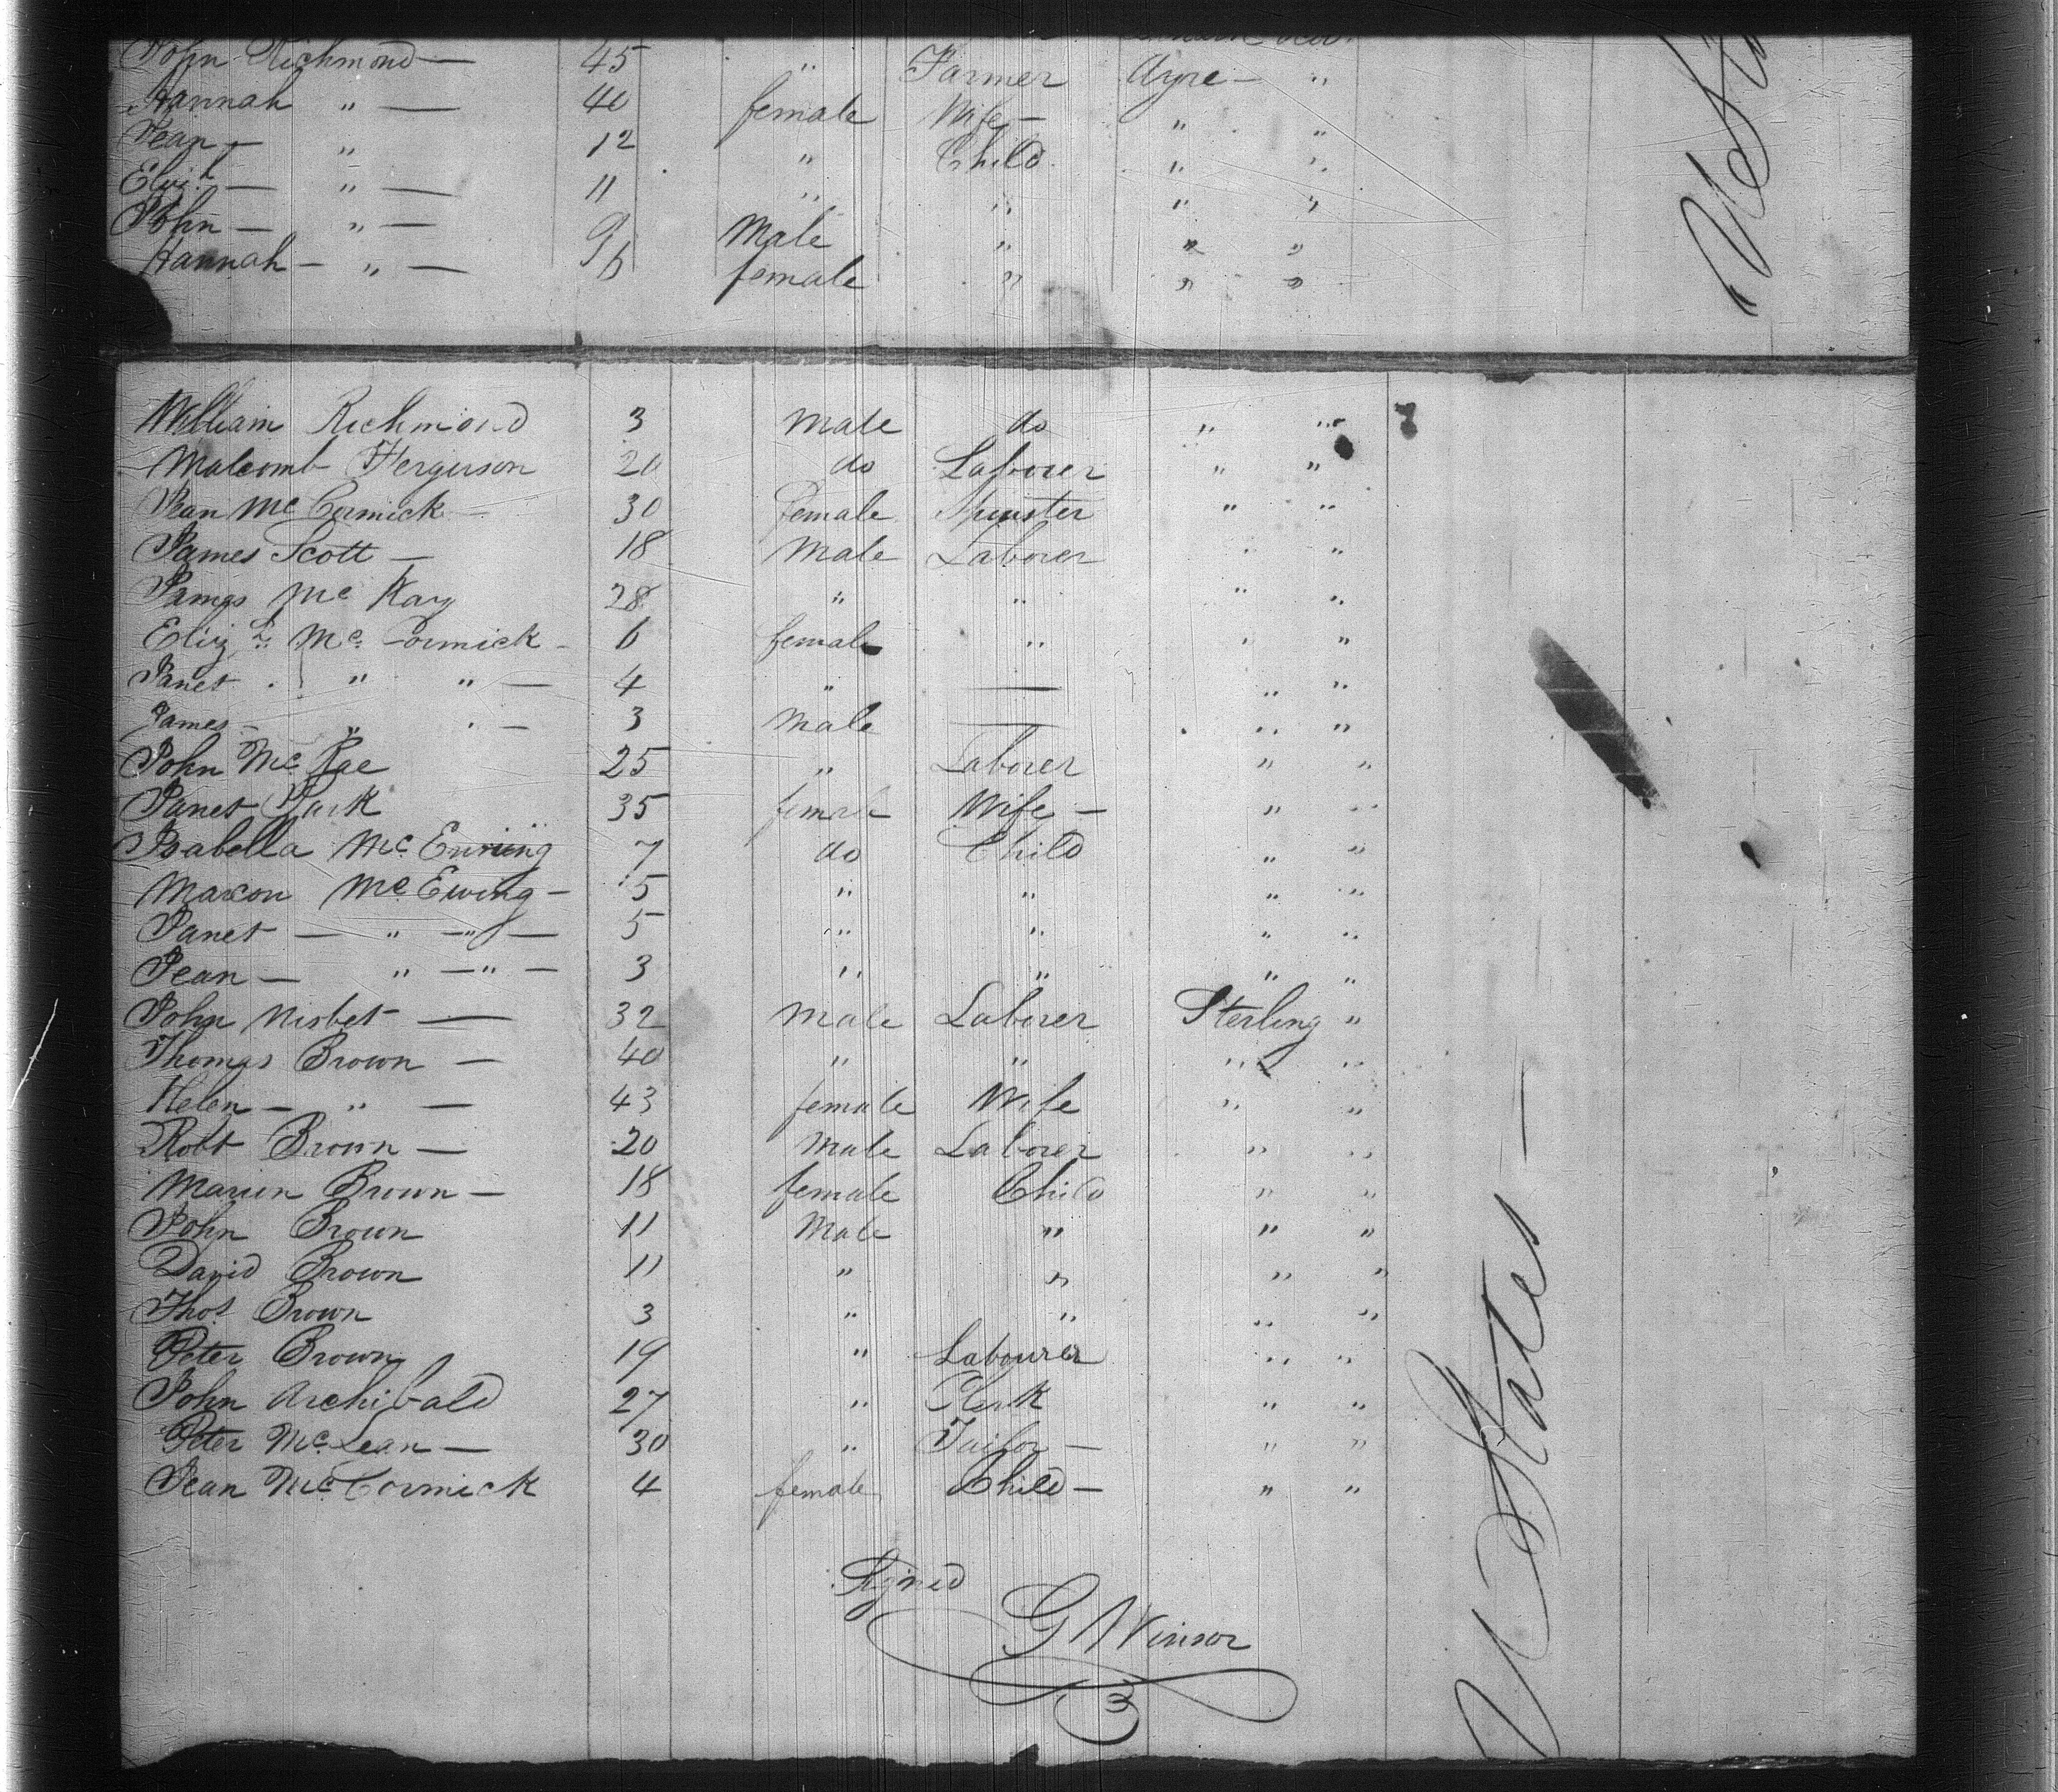 John Richmond — 45 " Farmer Ayre — "
Hannah " — 40 female Wife — " "
Jean — " 12 " Child " "
Eliz.h — " — 11 " " " "
John — " — 9 Male " " "
Hannah — " — 6 female " " "
William Richmond 3 Male do " "
Malcomb Ferguson 20 do Laborer " "
Jean Mc Cormick — 30 female Spinster " "
James Scott — 18 Male Laborer " "
James Mc Kay 28 " " " "
Eliz.h Mc Cormick — 6 female " " "
Janet " " — 4 " — " "
James — " " — 3 Male — " "
John Mc Rae 25 " Laborer " "
Janet Park 35 female Wife — " "
Isabella Mc Ewing 7 do Child " "
Maxon Mc Ewing — 5 " " " "
Janet — " — " — 5 " " " "
Jean — " — " — 3 " " " "
John Nisbet — 32 Male Laborer Sterling "
Thomas Brown — 40 " " " "
Helen — " — 43 female Wife " "
Robt Brown — 20 Male Laborer " "
Marion Brown — 18 female Child " "
John Brown 11 Male " " "
David Brown 11 " " " "
Thos Brown 3 " " " "
Peter Brown 19 " Labourer " "
John Archibald 27 " Clerk " "
Peter Mc Lean — 30 " Tailor — " "
Jean Mc Cormick 4 female Child — " "
Signed
G Winsor
U States —